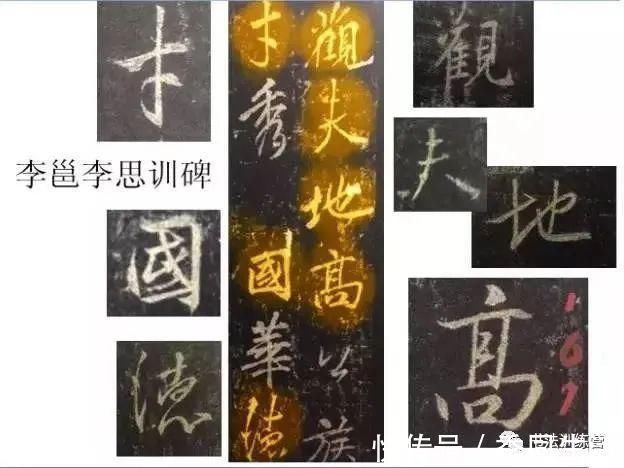 才
李邕李思训碑
國
德
觀夫地高以族
才秀國華德
觀
夫
地
高
167
书法训练营